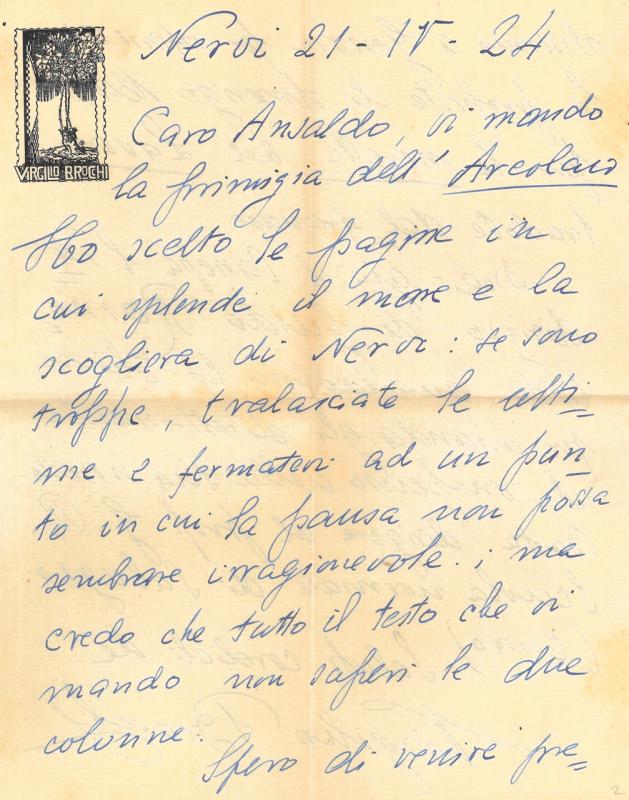 Nervi 21-IV-24
VIRGILIO BROCCHI
Caro Ansaldo, vi mando
la primizia dell' Arcolaio
Ho scelto le pagine in
cui splende il mare e la
scogliera di Nervi: se sono
troppe, tralasciate le ulti=
me e fermatevi ad un pun=
to in cui la pausa non possa
sembrare irragionevole.; ma
credo che tutto il testo che vi
mando non superi le due
colonne.
Spero di venire pre=
2